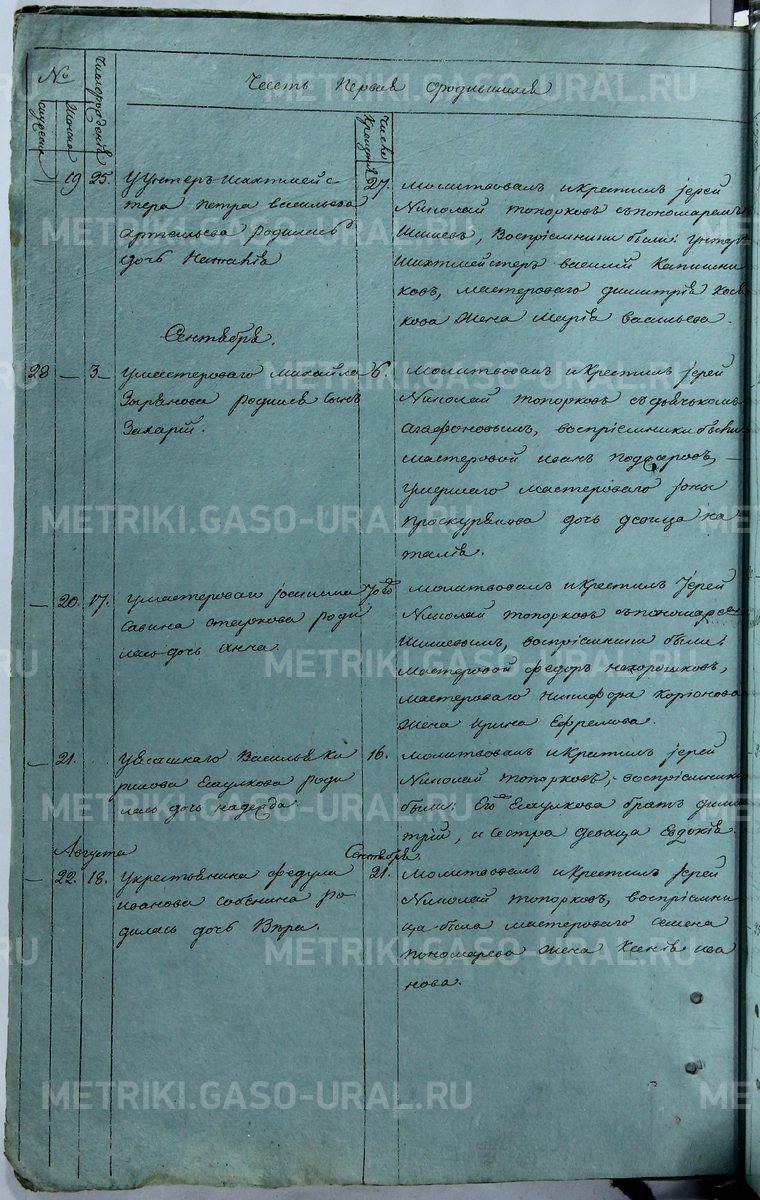 Часть Первая О родившихся
№
мужеска
женска
Число рождения
Число Крещения
19 25. У Унтеръ шахтмейс
тера Петра Васильева
Артемьева родилась
дочь Наталія
27. Молитвовалъ и Крестилъ Іерей
Николай Топорковъ съ пономаремъ
Воспріемники были: Унтеръ
Шахтмейстеръ Василій
ковъ, мастероваго Димитрія
кова жена Марія Васильева.
Сентября.
23 — 3 У мастероваго Михайла
Зырянова родился сынъ
Захарій.
6. Молитвовалъ и Крестилъ Іерей
Николай Топорковъ съ дьячькомъ
Агафоновымъ, воспріемники были
мастеровой Иванъ
умершаго мастероваго Іоны
Проскурякова дочь девица На
талія.
— 20. 17. У мастероваго
Савина роди
лась дочь Анна.
Молитвовалъ и Крестилъ Іерей
Николай Топорковъ съ пономаремъ
воспріемники были:
Мастеровой Федоръ Нахорошковъ,
мастероваго Никифора
жена Ирина Ефремова.
— 21. . . . Василья Ки
рилова Есаулкова роди
лась дочь Надежда.
16. Молитвовалъ и Крестилъ Іерей
Николай Топорковъ, воспріемники
были: Его Есаулкова братъ Дими
трій, и сестра девица Евдокія.
Августа Сентября.
— 22. 18. У крестьянина Федула
Иванова Собенина ро
дилась дочь Вѣра.
21. Молитвовалъ и Крестилъ Іерей
Николай Топорковъ, воспріемни
ца была мастероваго Семена
Пономарева жена Ксенія Ива
нова.
METRIKI.GASO-URAL.RU